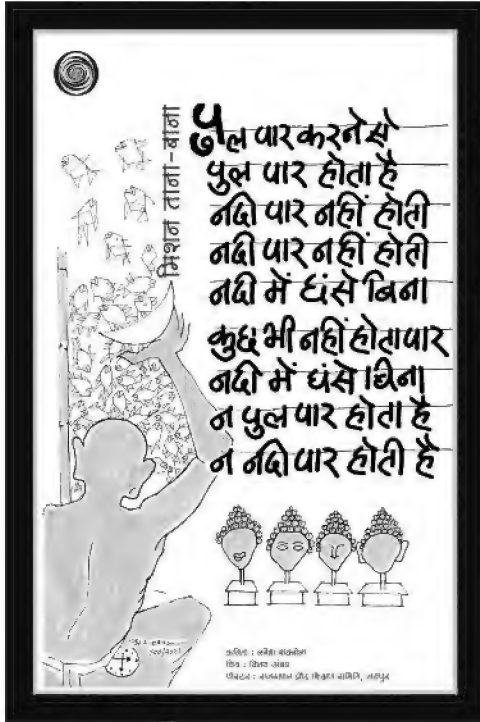 मिशन ताना-बाना
पुल पार करने से
पुल पार होता है
नदी पार नहीं होती
नदी पार नहीं होती
नदी में धंसे बिना
कुछ भी नहीं होता पार
नदी में धंसे बिना
न पुल पार होता है
न नदी पार होती है
कविता : नरेश सक्सेना
चित्र :
पोस्टर : राजस्थान प्रौढ़ शिक्षण समिति, जयपुर